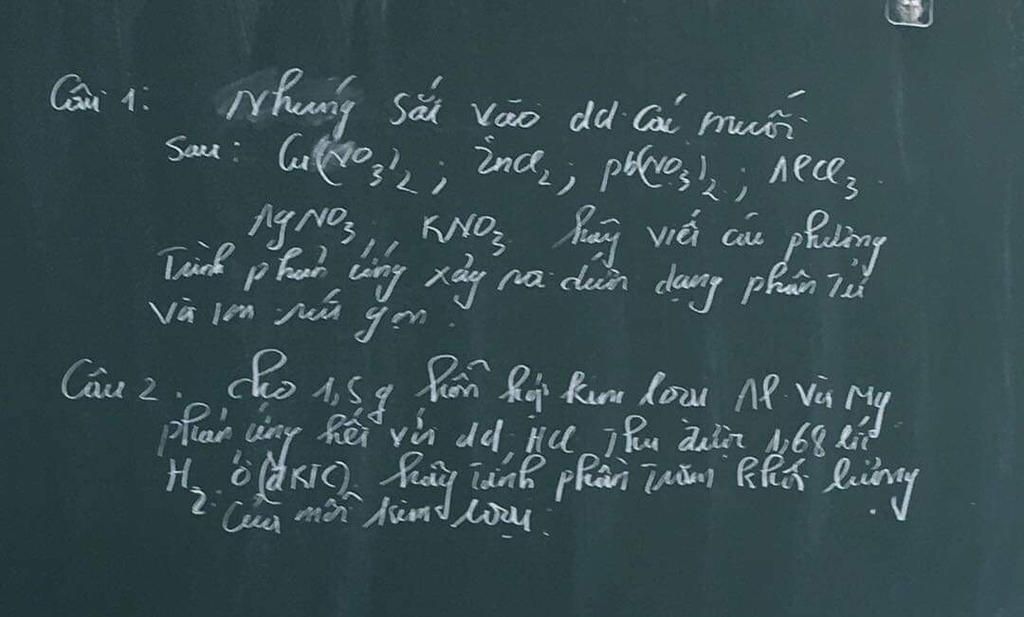 Câu 1: Nhúng sắt vào dd các muối
sau: Cu(NO3)2; ZnCl2; Pb(NO3)2; AlCl3.
AgNO3; KNO3. hãy viết các phương
trình phản ứng xảy ra dưới dạng phân tử
và ion rút gọn.
Câu 2. Cho 1,5g hỗn hợp kim loại Al và Mg
phản ứng hết với dd HCl thu được 1,68 lít
H2 ở (đKTC). hãy tính phần trăm khối lượng
của mỗi kim loại.